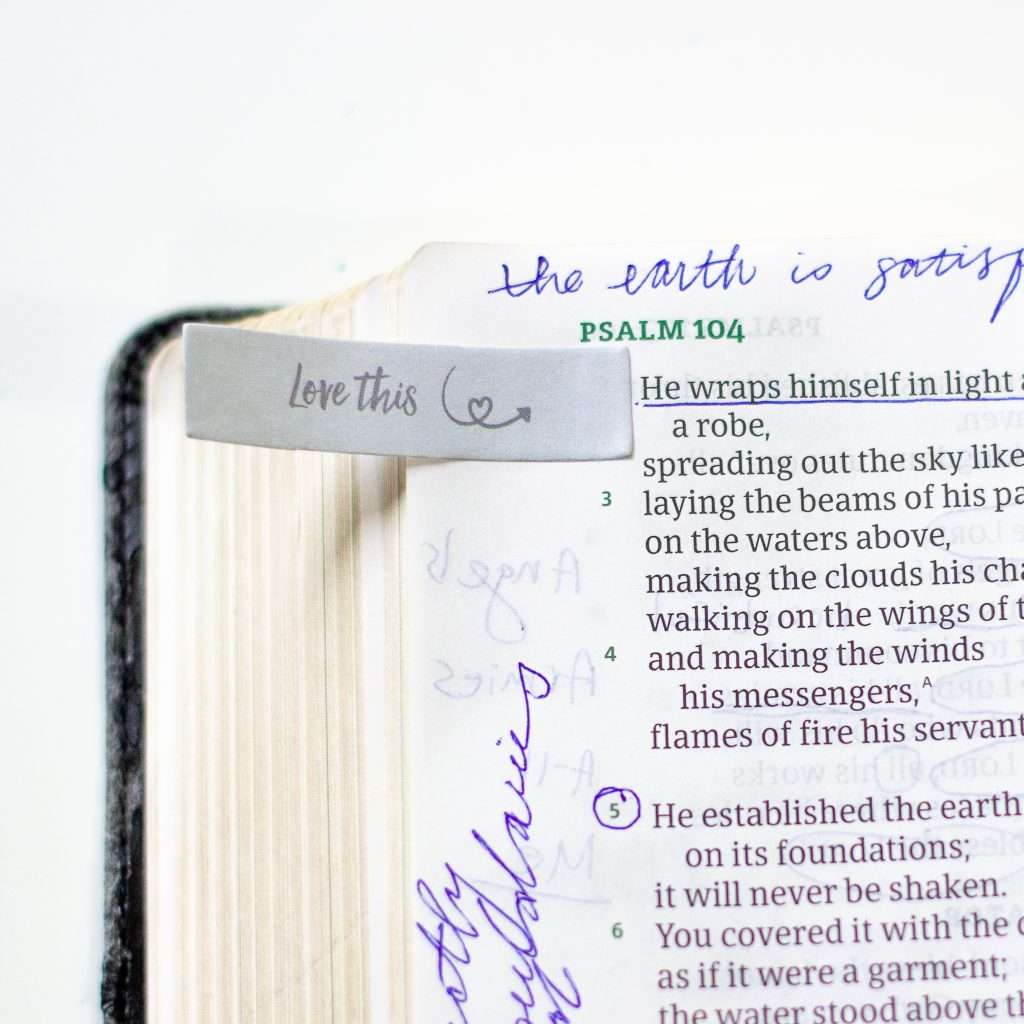 the earth is satisf
PSALM 104
Love this
He wraps himself in light a
a robe,
spreading out the sky like
3 laying the beams of his pa
on the waters above,
making the clouds his cha
walking on the wings of t
4 and making the winds
his messengers,ᴬ
flames of fire his servant
5 He established the earth
on its foundations;
it will never be shaken.
6 You covered it with the d
as if it were a garment;
the water stood above th